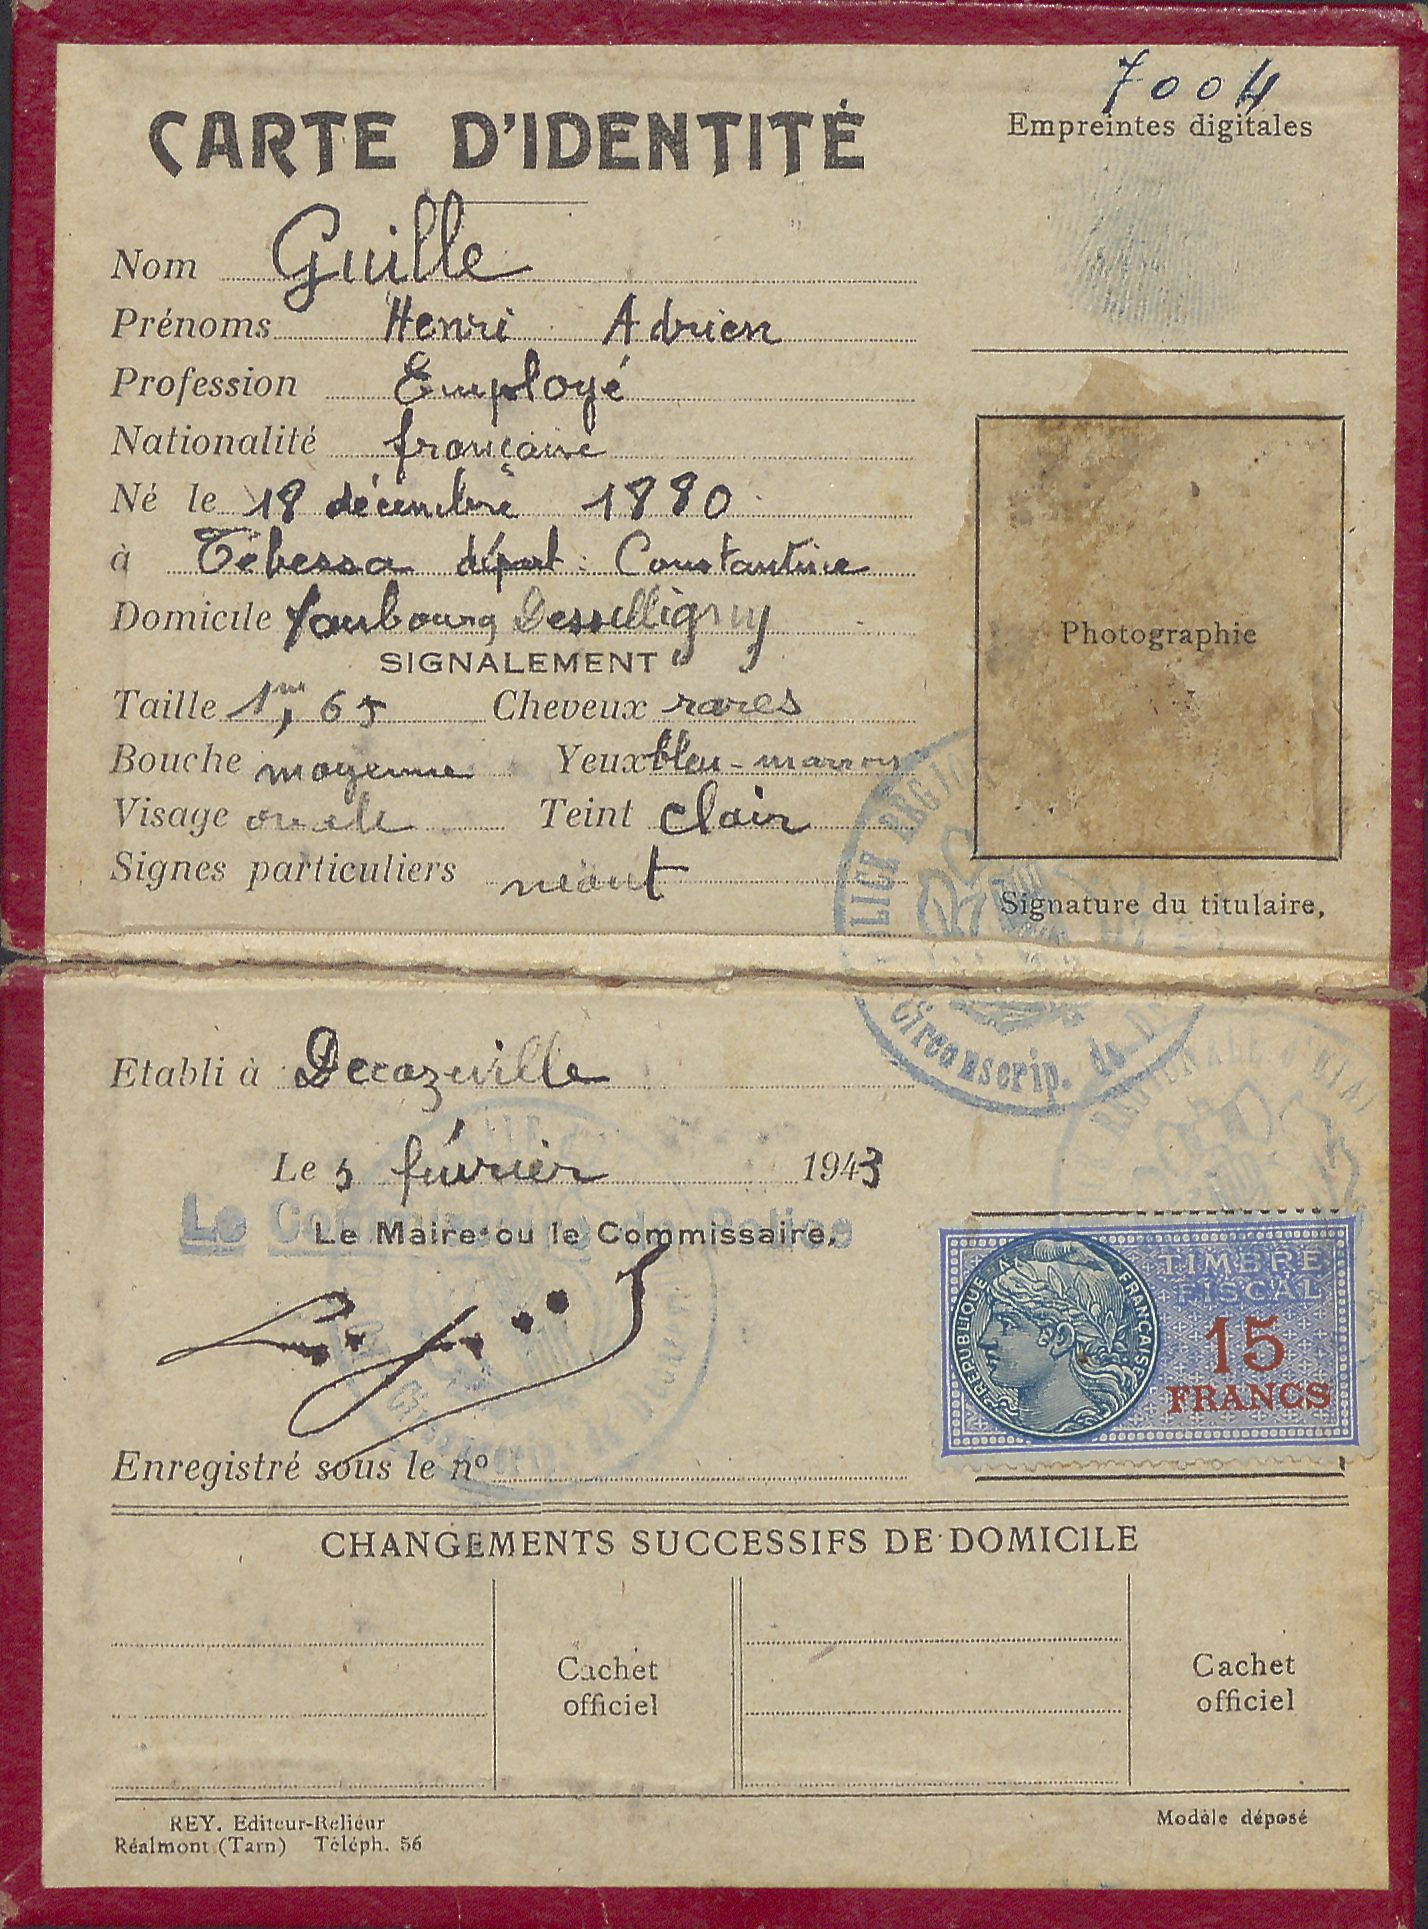 7004
CARTE D'IDENTITÉ
Empreintes digitales
Nom Guille
Prénoms Henri Adrien
Profession Employé
Nationalité française
Né le 18 décembre 1880
à Tébessa départ: Constantine
Domicile faubourg Desseligny
SIGNALEMENT
Taille 1m,65 Cheveux rares
Bouche moyenne Yeux bleu-marron
Visage ovale Teint clair
Signes particuliers néant
Photographie
Signature du titulaire,
LICE RÉGION
Circonscrip. de D
Etabli à Decazeville
Le 5 février 1943
Le Commissaire de Police
Le Maire ou le Commissaire,
RÉGIONALE D'ÉTAT
Circonscrip. de Decazeville
REPUBLIQUE FRANÇAISE
TIMBRE
FISCAL
15
FRANCS
Enregistré sous le nº
CHANGEMENTS SUCCESSIFS DE DOMICILE
Cachet
officiel
Cachet
officiel
REY. Editeur-Relieur
Réalmont (Tarn) Téléph. 56
Modèle déposé